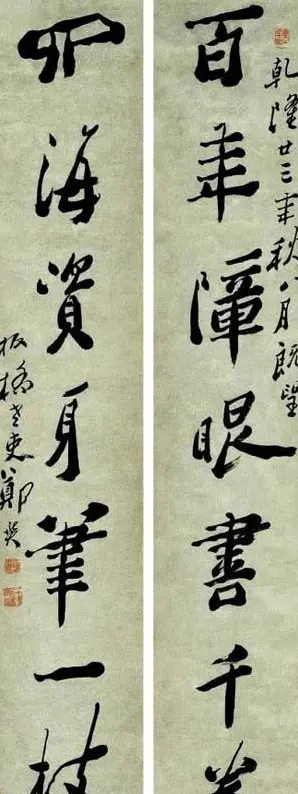 乾隆廿三年秋八月既望
百年障眼書千卷
四海資身筆一枝
板橋老鄭燮